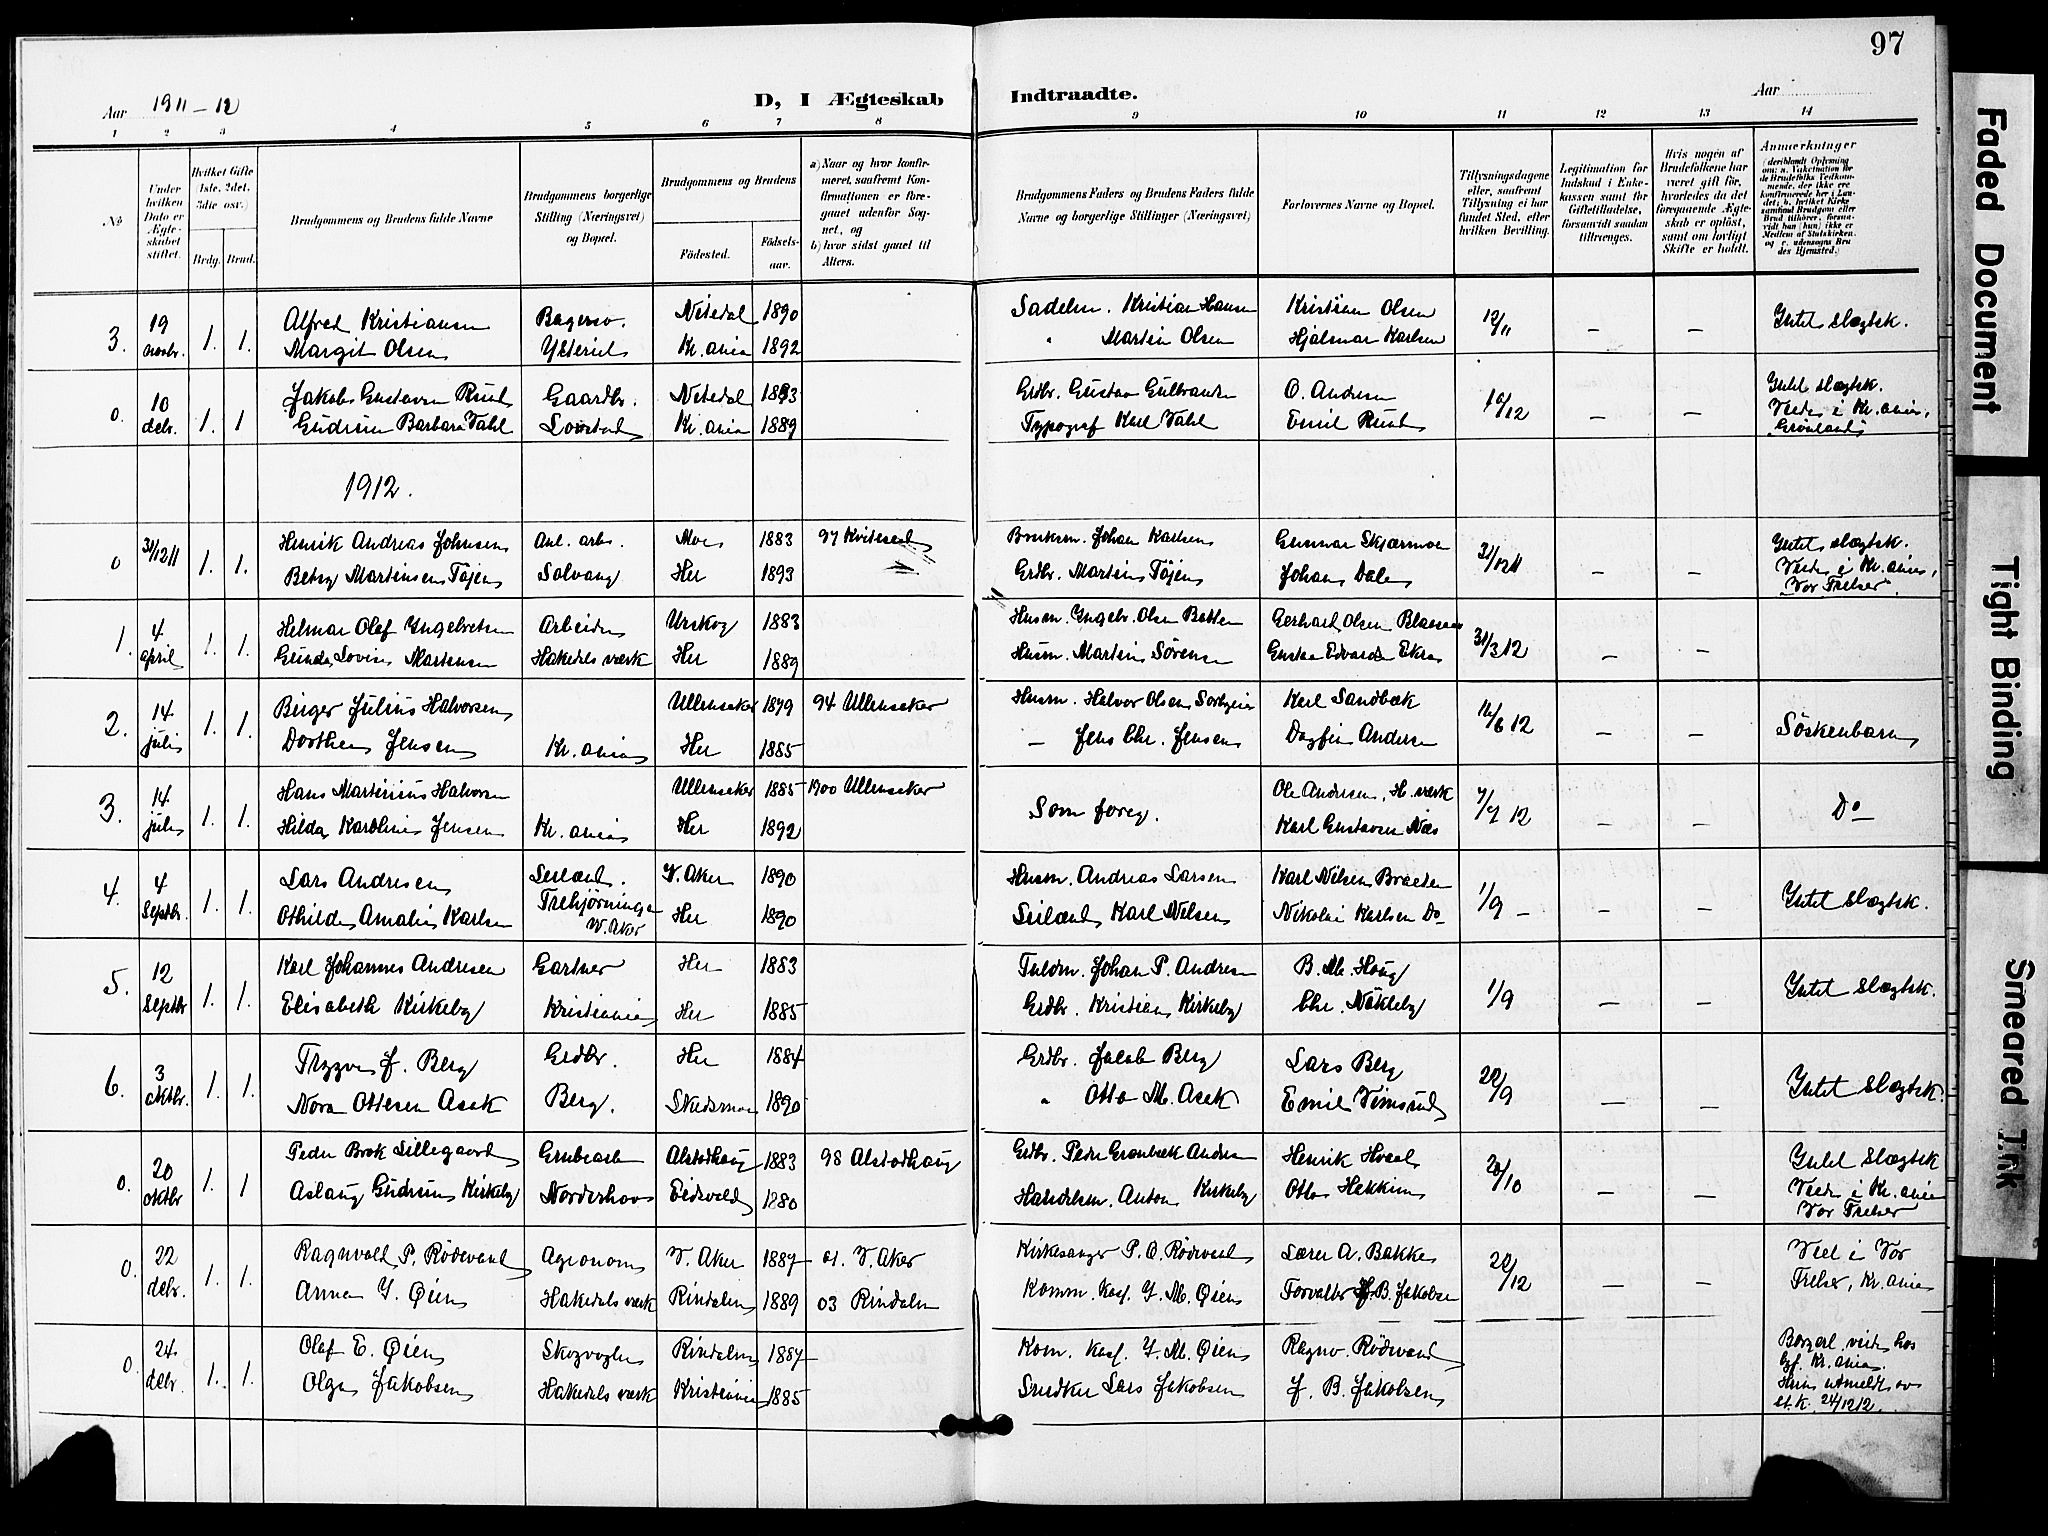 97
Aar 1911-12
D, I Ægteskab Indtraadte.
Aar
1 2 3 4 5 6 7 8 9 10 11 12 13 14
No
Under hvilken Dato er Ægteskabet stiftet.
Hvilket Gifte (1ste, 2det, 3die osv.)
Brdg. Brud.
Brudgommens og Brudens fulde Navne
Brudgommens borgerlige Stilling (Næringsvei) og Bopæl.
Brudgommens og Brudens
Fødested. Fødselsaar.
a) Naar og hvor konfirmeret, saafremt Konfirmationen er foregaaet udenfor Sognet, og
b) hvor sidst gaaet til Alters.
Brudgommens Faders og Brudens Faders fulde Navne og borgerlige Stillinger (Næringsvei)
Forlovernes Navne og Bopæl.
Tillysningsdagene eller, saafremt Tillysning ei har fundet Sted, efter hvilken Bevilling.
Legitimation for Indskud i Enkekassen samt for Giftetilladelse, forsaavidt saadan tiltrænges.
Hvis nogen af Brudefolkene har været gift før, hvorledes da det foregaaende Ægteskab er opløst, samt om lovligt Skifte er holdt.
Anmerkninger
3. 19 novbr. 1. 1. Alfred Kristiansen Nitedal 1890 Sadelm. Kristian Hansen Kristian Olsen 12/11 — — Intet slægtsk.
Margit Olsen Kr.ania 1892 " Martin Olsen Hjalmar Karlsen
0. 10 debr. 1. 1 Jakob Gustavsen Ruud Gaardbr. Nitedal 1883 Grdbr. Gustav Gulbrandsen O. Andresen 10/12 — — Intet slægtsk.
Gudrun Barbara Vahl Kr.ania 1889 Typograf Karl Vahl Emil Ruud Viede i Kr.ania, Grønland
1912.
0 31/12 11 1. 1. Henrik Andreas Johnsen Anl. arb. Moe 1883 97 Kviteseid Bruksm. Johan Karlsen Gunnar Skjærmoe 31/12 11 — — Intet slægtsk.
Betsy Martinsen Töjen Solvang Her 1893 Grdbr. Martin Töjen Johans Dalen Viede i Kr.ania, Vor Frelser.
1. 4 april 1. 1. Helmar Olaf Ingebretsen Arbeider Urskog 1883 Husm. Ingebr. Olsen Batten Gerhard Olsen 31/3 12 — —
Gunda Lovise Martinsen Hakedals værk Her 1889 Husm. Martin Sörensen Gustav Edvardsen Ekra
2. 14 juli 1. 1. Birger Julius Halvorsen Ullensaker 1879 94 Ullensaker Husm. Halvor Olsen Karl Sandbæk 16/6 12 — — Söskenbarn
Dorthea Jensen Kr.ania Her 1885 — Jens Chr. Jensen Dagfin Andersen
3. 14 juli 1. 1. Hans Martinius Halvorsen Ullensaker 1885 1900 Ullensaker Som foreg. Ole Andresen, H. værk 7/7 12 — — Do
Hilda Karoline Jensen Kr.ania Her 1892 Karl Gustavsen Næs
4. 4 Septbr. 1. 1. Lars Andresen V. Aker 1890 Husm. Andreas Larsen Karl Nilsen Braaten 1/9 — — — Intet slægtsk.
Othilde Amalie Karlsen Trehjørningen V. Aker Her 1890 Karl Nilsen Nikolai Karlsen Do
5. 12 Septbr 1. 1. Karl Johannes Andresen Gartner Her 1883 Fuldm. Johan P. Andresen B. M. Houg 1/9 — — Intet slægtsk.
Elisabeth Kirkeby Kristiania Her 1885 Grdbr. Kristian Kirkeby Chr. Nökleby
6. 3 oktbr. 1. 1. Trygve J. Berg Grdbr. Her 1884 Grdbr. Jacob Berg Lars Berg 20/9 — — Intet slægtsk.
Nora Ottesen Asak Berg. Skedsmo 1890 " Otto M. Asak Emil Vimsrud
0. 20 oktbr 1. 1 Peder Brok Lillegaard Grubearb. Alstadhaug 1883 98 Alstadhaug Grdbr. Peder Grønbæk Andersen Henrik Hvaal 20/10 — — Intet slægtsk
Aslaug Gudrun Kirkeby Norderhov Eidsvold 1880 Handelsm. Anton Kirkeby Otto Hekkim Viede i Kr.ania Vor Frelser
0. 22 debr. 1. 1. Ragnvald P. Rødvand Agronom V. Aker 1887 01. V. Aker Kirkesanger P. O. Rødvand Lærer A. Bakke 20/12 — — Viet i Vor Frelser, Kr.ania
Anna I. Øien Hakedals værk Rindalen 1889 03 Rindalen Komm. Kasf. I. M. Øien Forvalter J. B. Jakobsen
0. 24. debr. 1. 1. Olaf E. Øien Skogvogter Rindalen 1887 Kom. Kasf. I. M. Øien Ragnv. Rødvand Borgerl. viede hos byf. Kr.ania.
Olga Jakobsen Hakedals værk Kristiania 1885 Snedker Lars Jakobsen J. B. Jakobsen utmeldt av st.k. 24/12 12.
Faded Document
Tight Binding
Smeared Ink